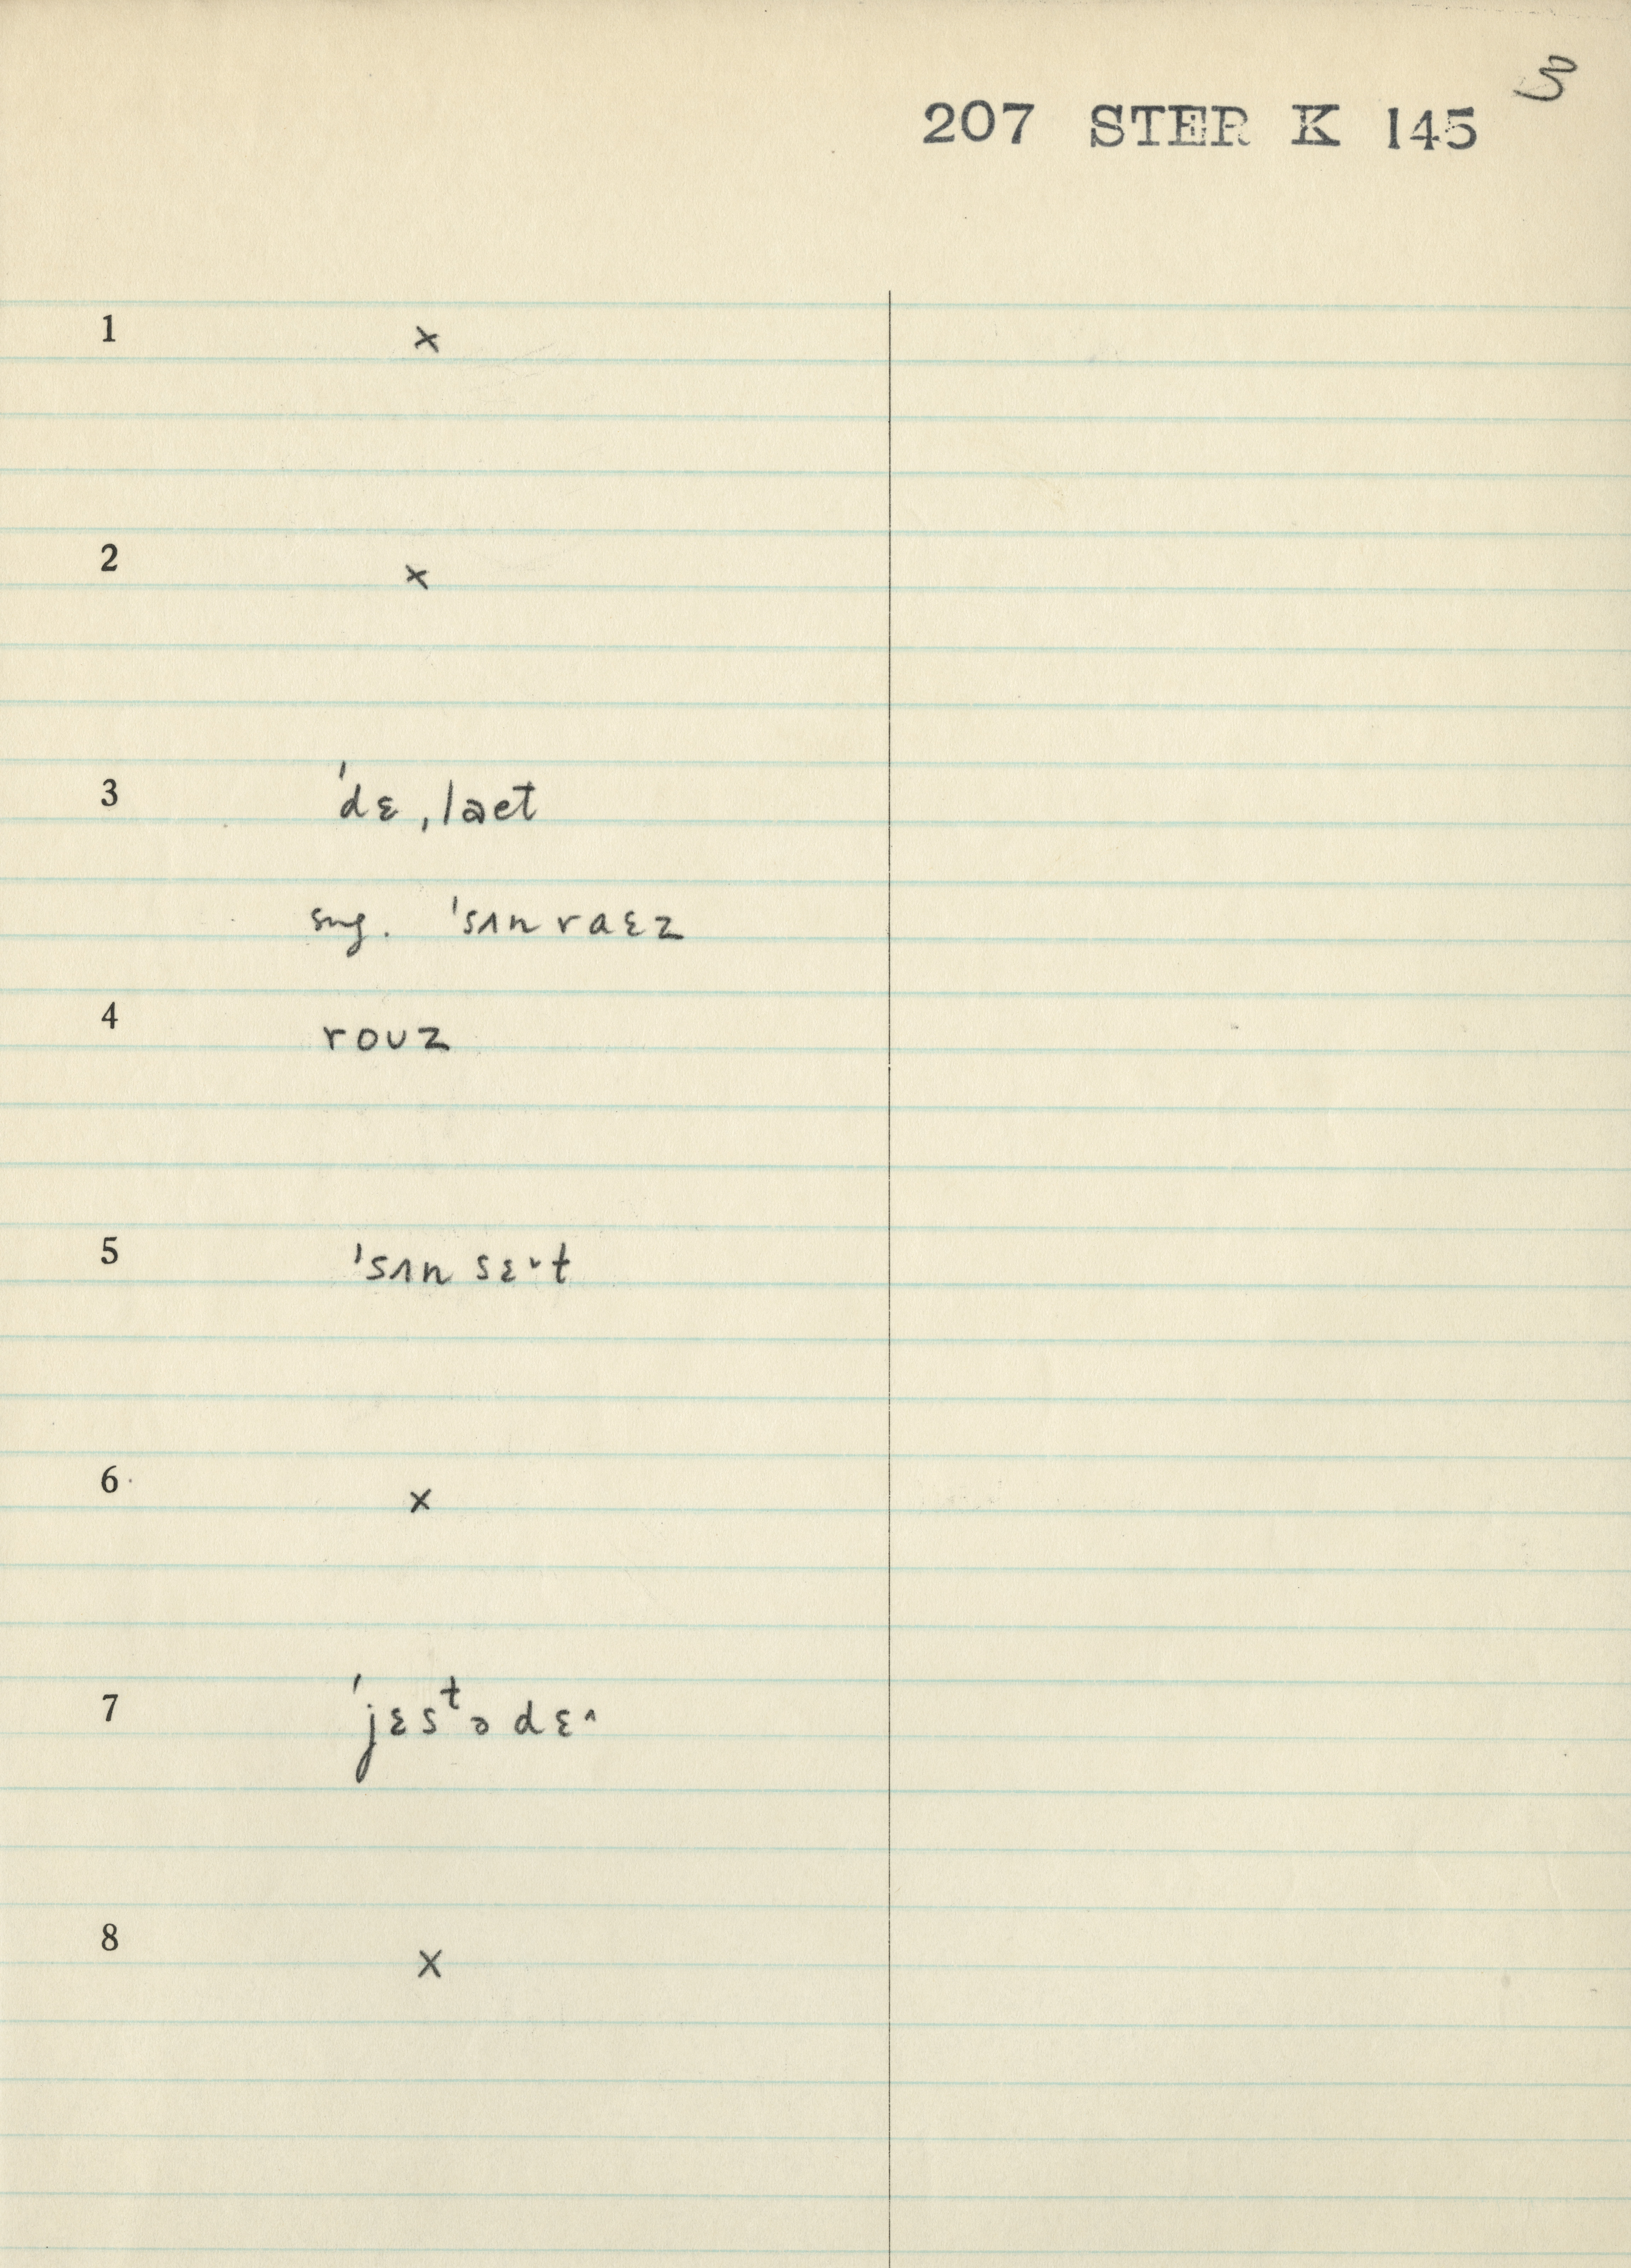 3
207 STER K 145
1 ×
2 ×
3 ˈdɛˌlaet
sug. ˈsʌnraɛz
4 rouz
5 ˈsʌnsɛˑt
6 ×
7 ˈjɛsᵗədɛ^
8 ×